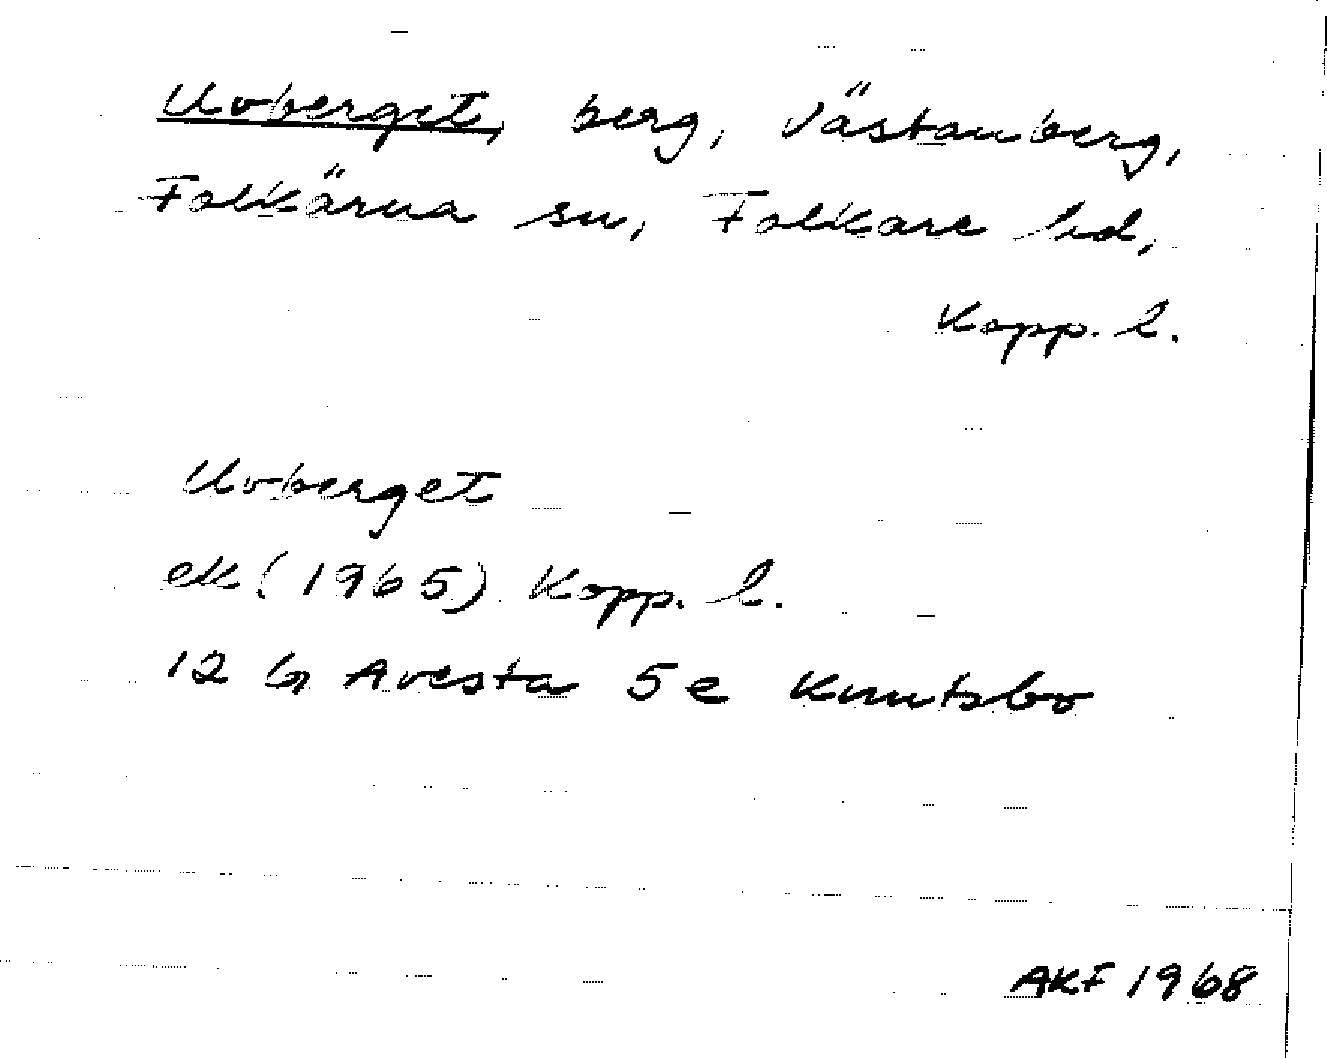 Uvberget, berg, Västanberg,
Folkärna sn, Folkare hd,
Kopp. l.
Uvberget
ek (1965) Kopp. l.
12 G Avesta 5e Knutsbo
AKF 1968